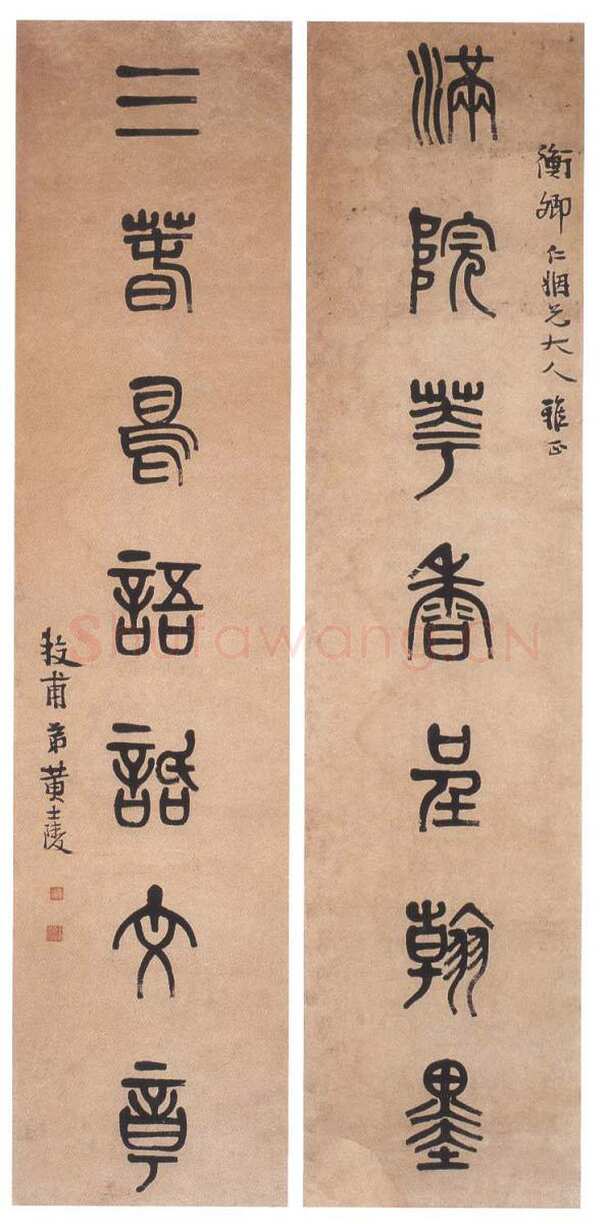 衡卿仁姻兄大人雅正
滿院華香呈翰墨
三春鳥語話文章
牧甫弟黃士陵
Shufawang.CN